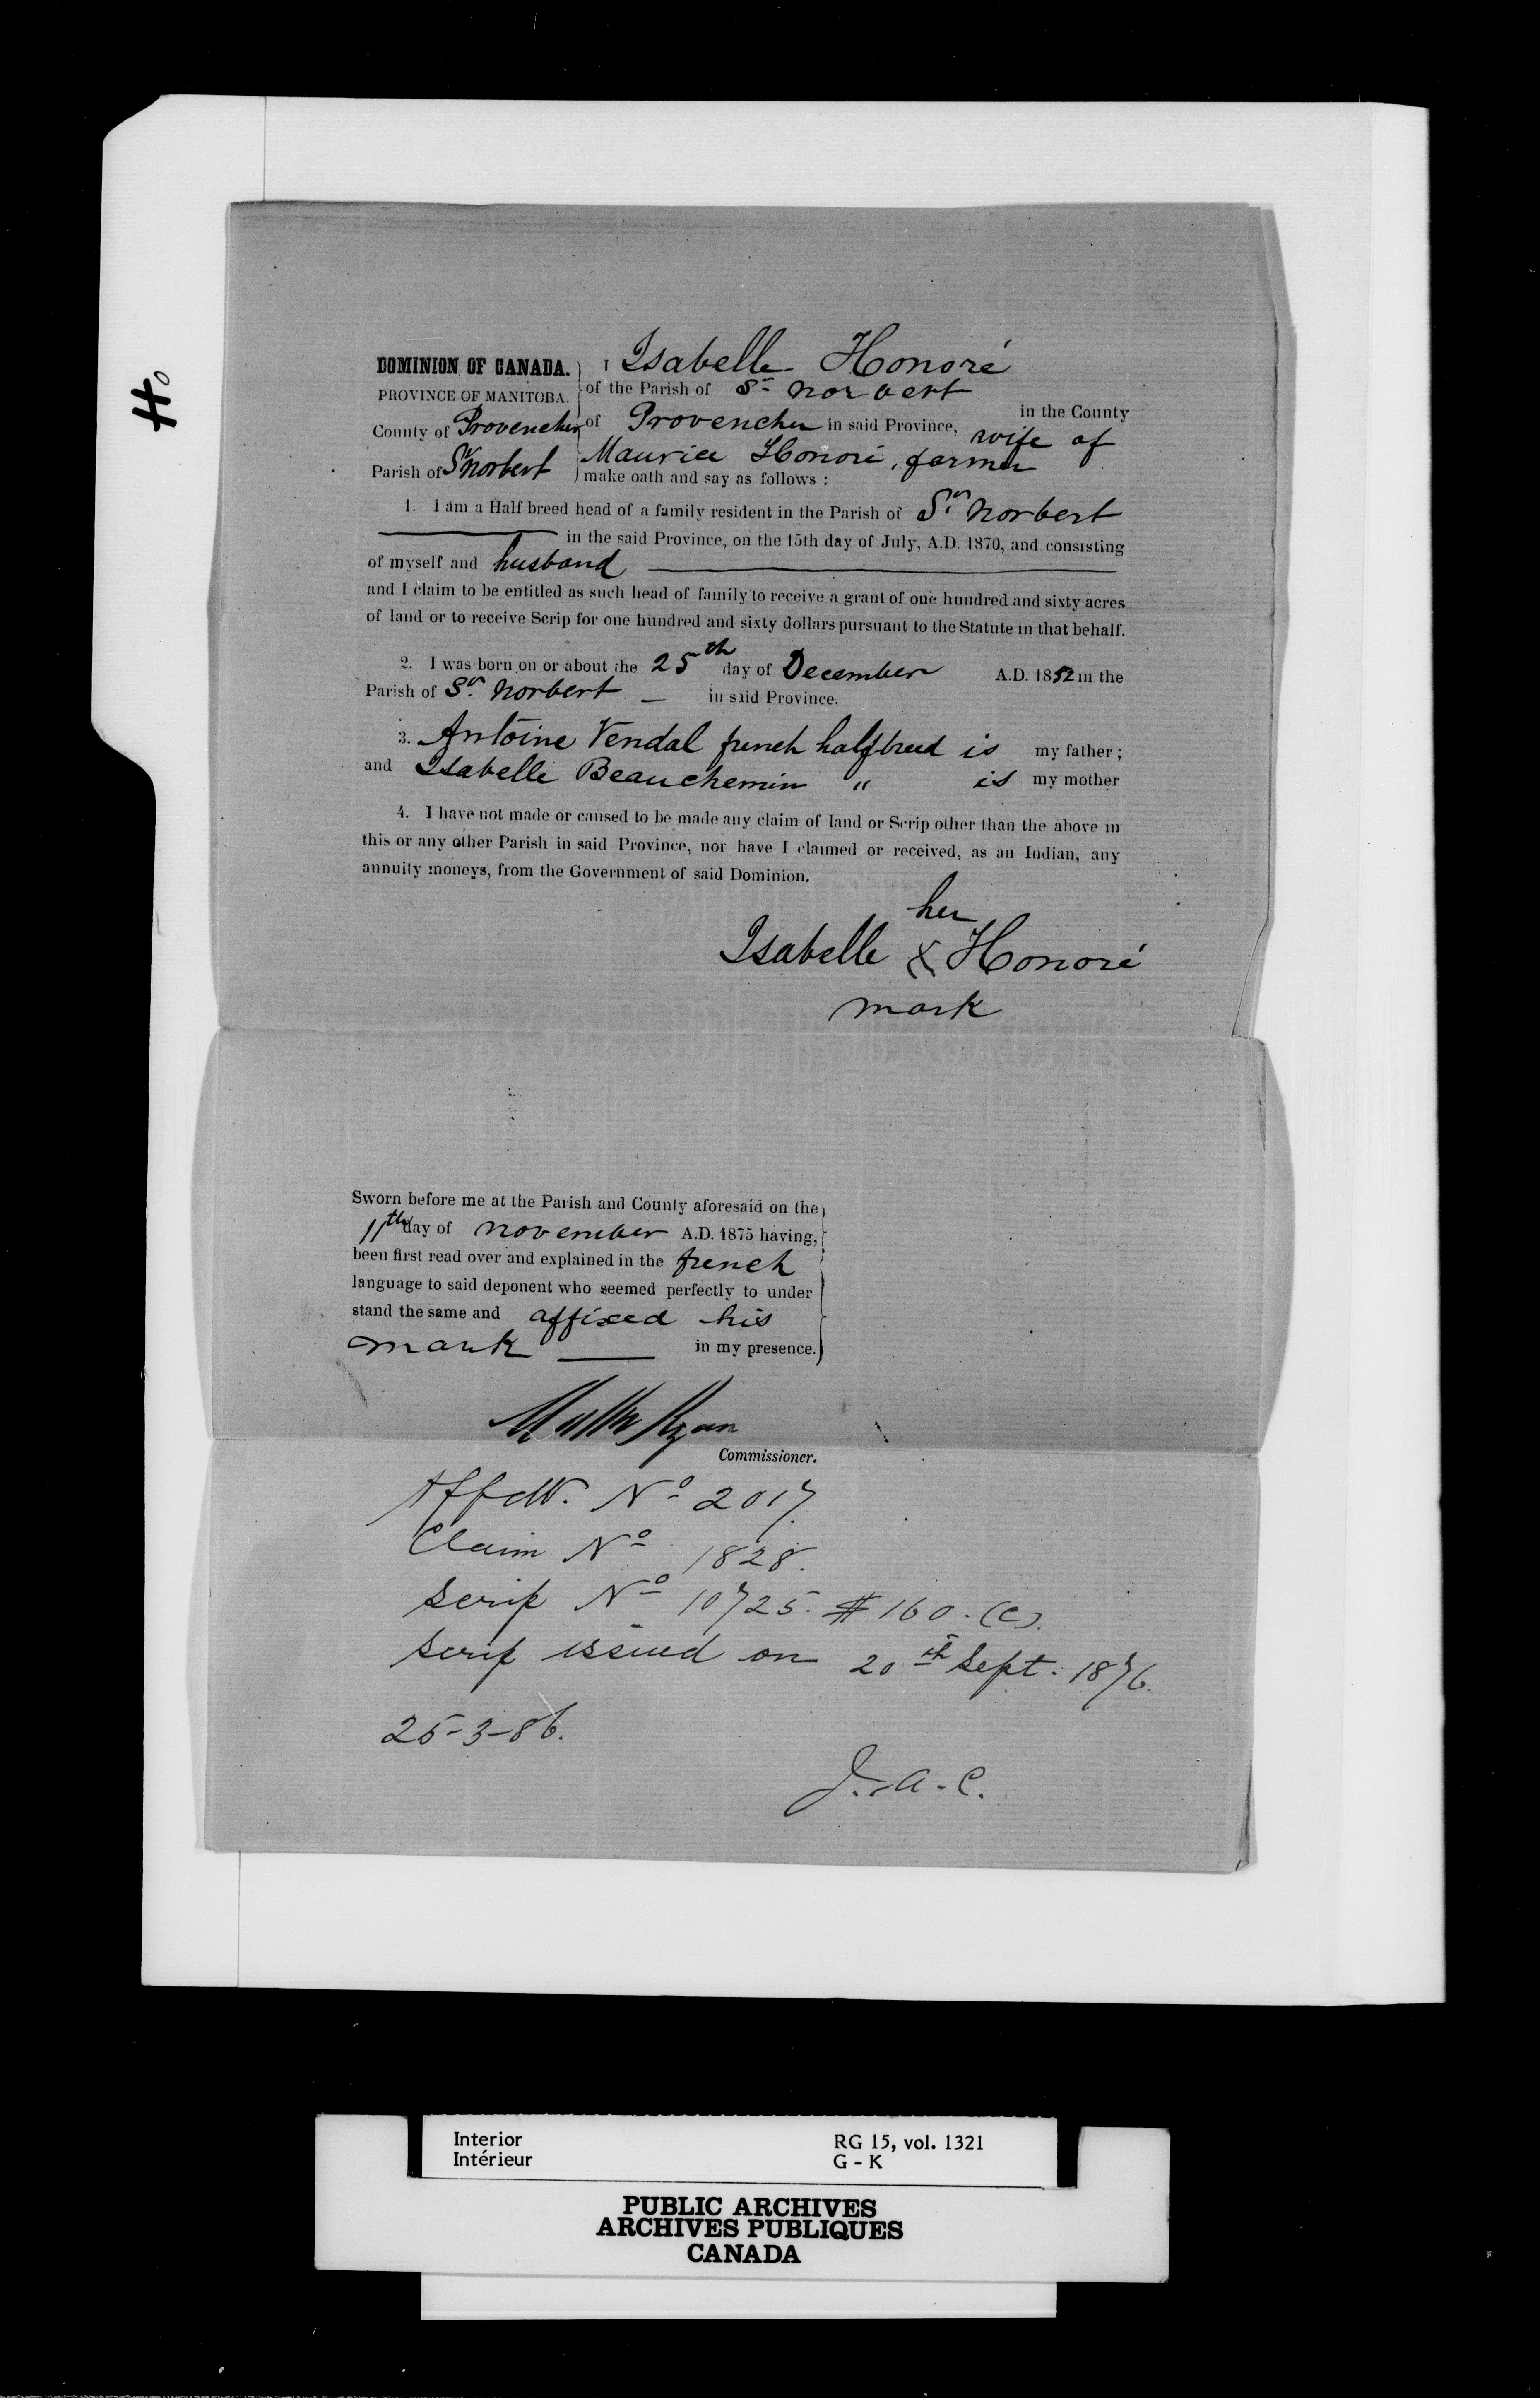 Ho
DOMINION OF CANADA.
PROVINCE OF MANITOBA.
County of Provencher
Parish of St Norbert
I Isabelle Honoré
of the Parish of St Norbert
in the County
of Provencher in said Province, wife of
Maurice Honoré, farmer
make oath and say as follows :
1. I am a Half-breed head of a family resident in the Parish of St. Norbert
in the said Province, on the 15th day of July, A.D. 1870, and consisting
of myself and husband
and I claim to be entitled as such head of family to receive a grant of one hundred and sixty acres
of land or to receive Scrip for one hundred and sixty dollars pursuant to the Statute in that behalf.
2. I was born on or about the 25th day of December A.D. 1852 in the
Parish of St. Norbert — in said Province.
3. Antoine Vendal french halfbreed is my father ;
and Isabelle Beauchemin " is my mother
4. I have not made or caused to be made any claim of land or Scrip other than the above in
this or any other Parish in said Province, nor have I claimed or received, as an Indian, any
annuity moneys, from the Government of said Dominion.
her
Isabelle X Honoré
mark
Sworn before me at the Parish and County aforesaid on the
11th day of november A.D. 1875 having,
been first read over and explained in the french
language to said deponent who seemed perfectly to under
stand the same and affixed his
mark in my presence.
Matthw Ryan
Commissioner.
Affdt. No 2017.
Claim No 1828.
Scrip No 10725. $160. (c).
Scrip issued on 20th Sept. 1876.
25-3-86.
J. A. C.
Interior
Intérieur
RG 15, vol. 1321
G - K
PUBLIC ARCHIVES
ARCHIVES PUBLIQUES
CANADA